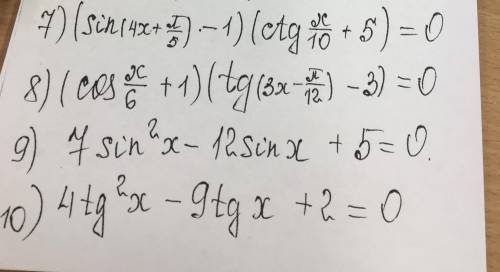 7) (sin(4x+π/5)·-1)(ctg x/10 + 5) = 0
8) (cos x/6 + 1)(tg(3x-π/12) - 3) = 0
9) 7sin²x - 12sinx + 5 = 0.
10) 4tg²x - 9tgx + 2 = 0